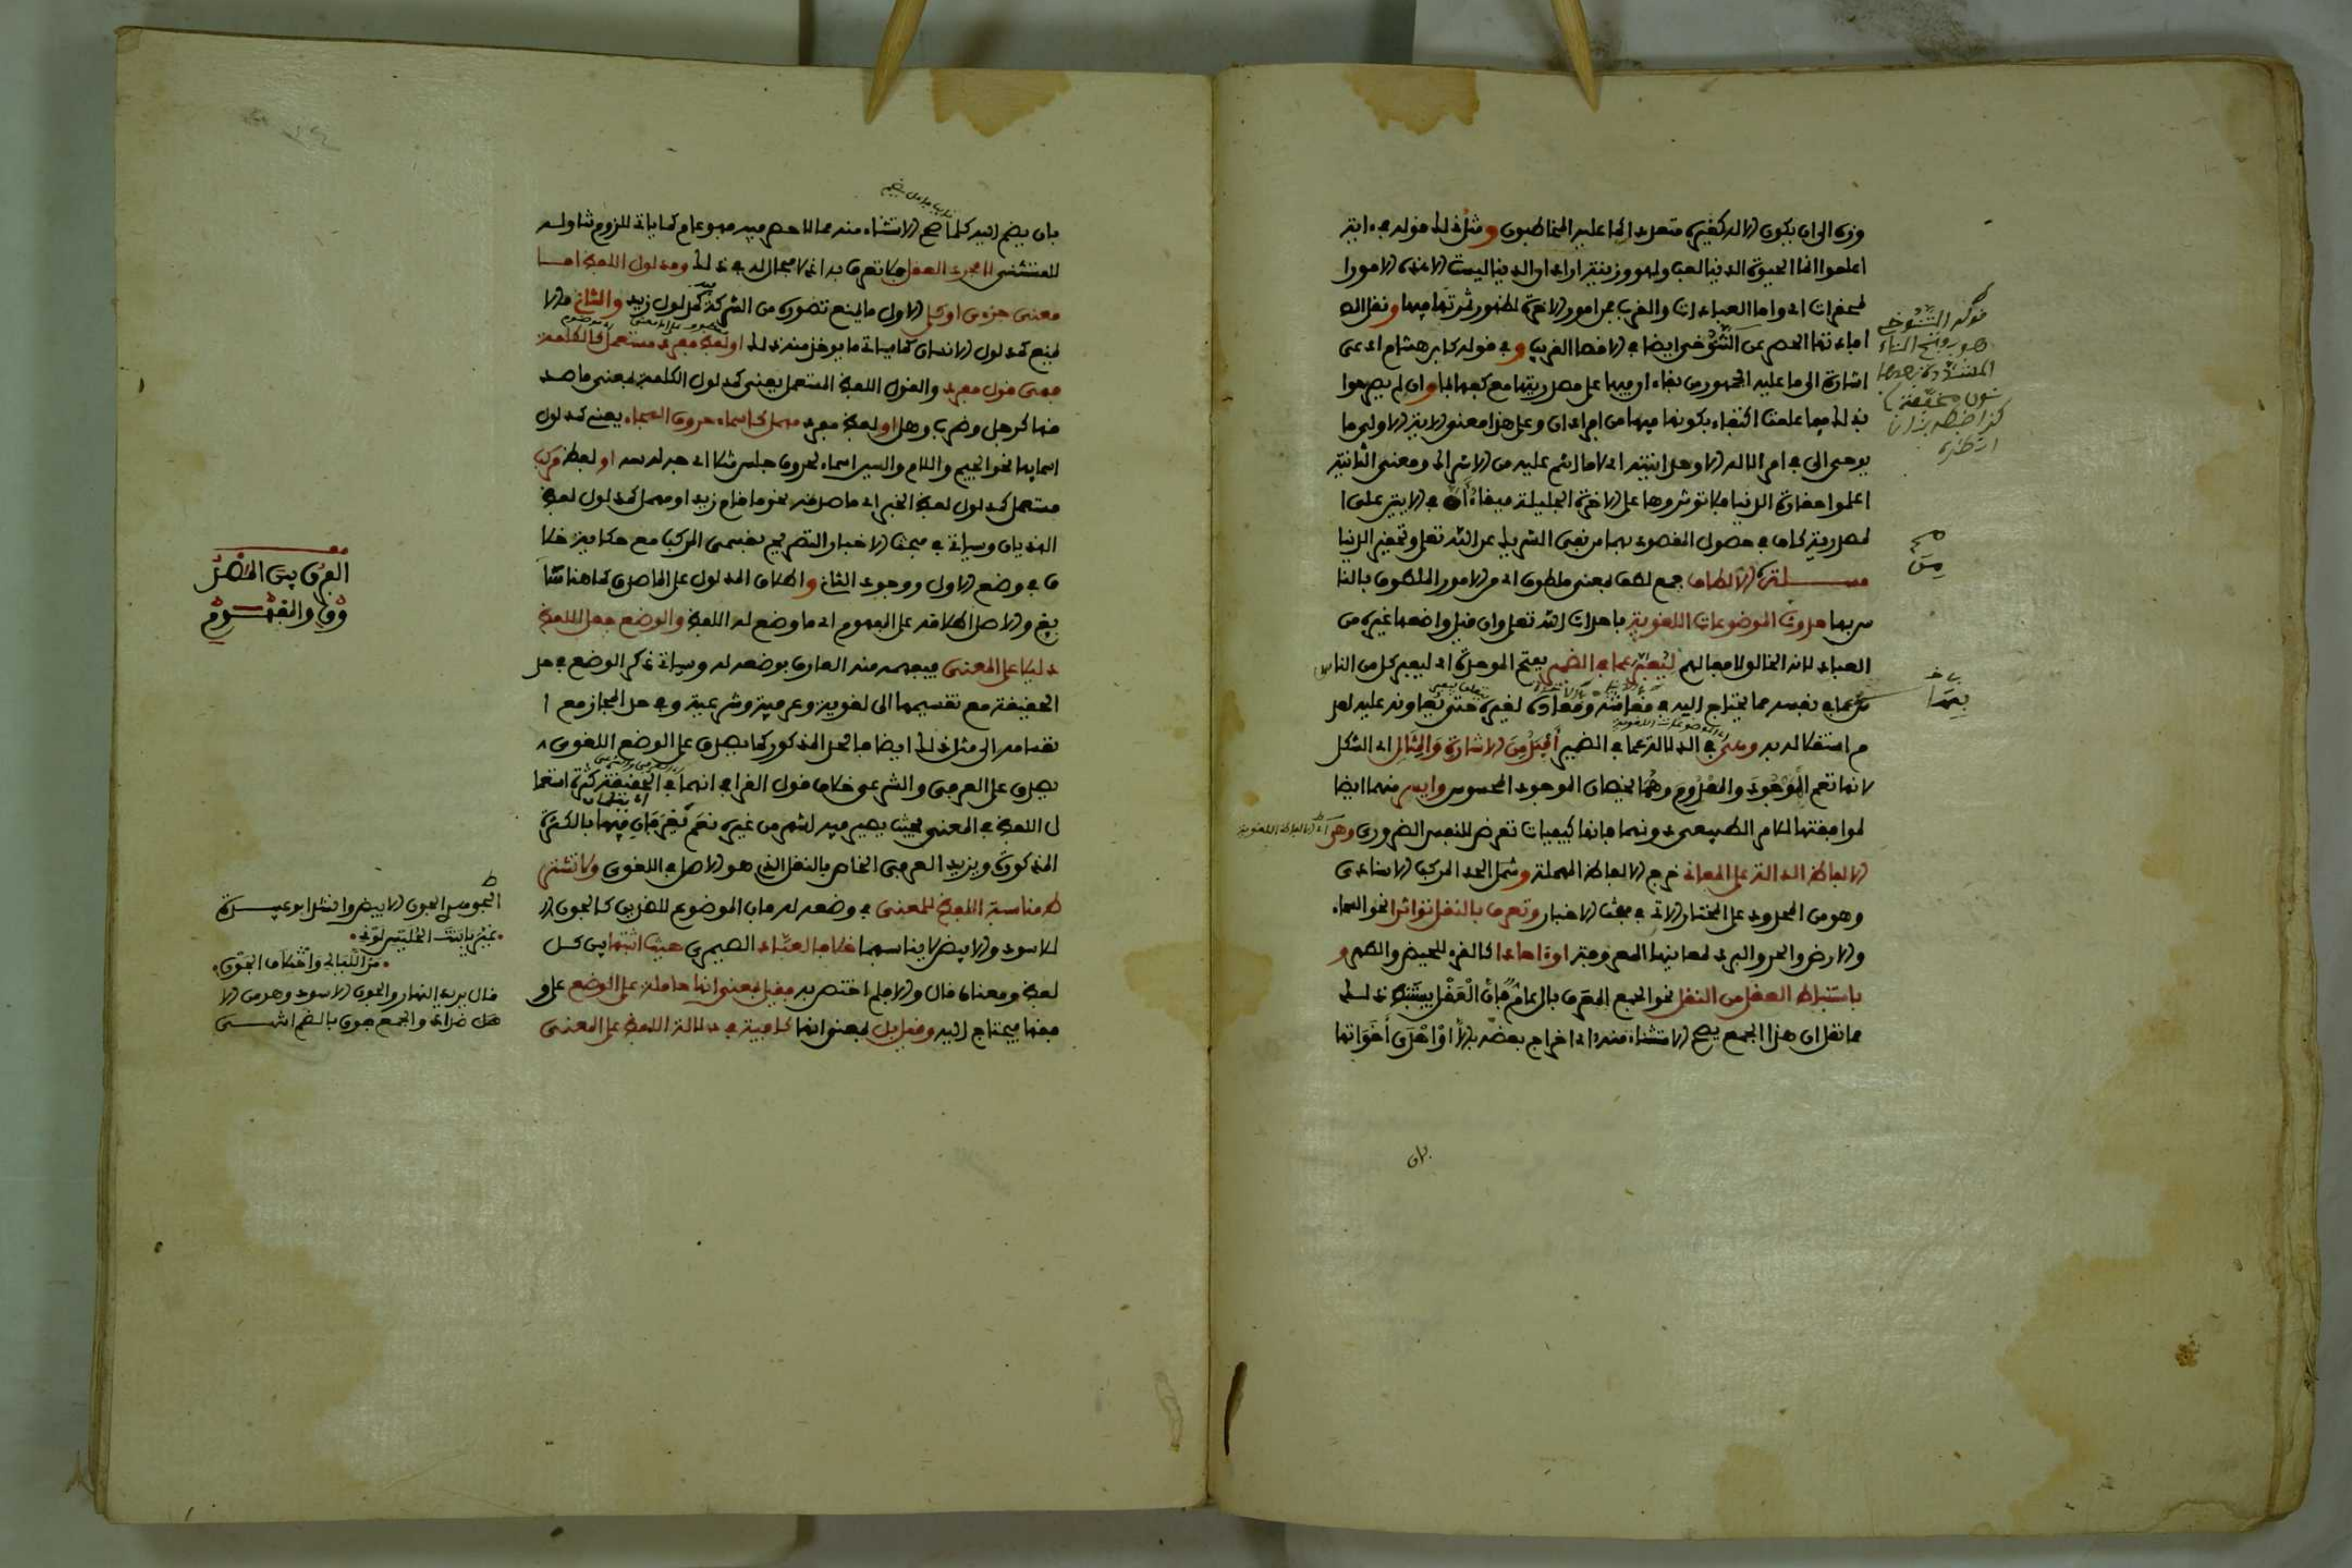 وزه الى ان يكون الاله كغيره متعددا كما عليه المخاطبون ومثل ذلك قوله في ءاية
اعلموا انما الحيوة الدنيا لعب ولهو وزينة اراد ان الدنيا ليست الا هذه الامور ا
لمحقرات اي واما العبادات والقرب فمن امور الاخرة لظهور ثمرتها فيها ونقل ال
افادتها الحصر عن التنوخي ايضا في الاقصا القريب وفي قوله كابن هشام ادعى
اشارة الى ما عليه الجمهور من بقاء ان فيها على مصدريتها مع كفها بما وان لم يصرحوا
بذلك فيما علمت اكتفاء بكونها فيها من افراد ان وعلى هذا معنى الاية الاولى ما
يوحى الي في امر الاله الا وحدانيته اي لا ما انتم عليه من الاشراك ومعنى الثانية
اعلموا حقارة الدنيا فلا توثروها على الاخرة الجليلة فبقاء ان في الاية على ا
لمصدرية كاف في حصول المقصود بهما من نفي الشريك عن الله تعلى وتحقير الدنيا
مسئلة من الالطاف جمع لطف بمعنى ملطوف اي من الامور الملطوف بالنا
س بها حدوث الموضوعات اللغوية باحداث الله تعلى وان قيل واضعها غيره من
العباد لانه الخالق لافعالهم ليعبر عما في الضمير بفتح الموحدة اي ليعبر كل من الناس
عما في نفسه مما يحتاج اليه في معاشه ومعاده لغيره حتى يعاونه عليه لعد
م استقلاله به وهي في الدلالة عما في الضمير افيد من الاشارة والمثال اي الشكل
لانها تعم الموجود والمعدوم وهما يخصان الموجود المحسوس وايسر منهما ايضا
لموافقتها للامر الطبيعي دونهما فانها كيفيات تعرض للنفس الضروري وهي
الالفاظ الدالة على المعاني خرج الالفاظ المهملة وشمل الحد المركب الاسنادي
وهو من المحدود على المختار الاتي في مبحث الاخبار وتعرف بالنقل تواترا نحو السماء
والارض والحر والبرد لمعانيها المعروفة او ءاحادا كالقرء للحيض والطهر و
باستنباط العقل من النقل نحو الجمع المعرف بال عام فان العقل يستنبط ذلك
مما نقل ان هذا الجمع يصح الاستثناء منه اي اخراج بعضه بالا او احدى اخواتها
بان
قوله التنوخي
هو بفتح التاء
المشددة بعدها
نون مخففة
كذا ضبطه
بان يضم اليه كلما صح الاستثناء منه مما لا حصر فيه فهو عام كما ياتي للزوم تناوله
للمستثنى لا مجرد العقل فلا تعرف به اذ لا مجال له في ذلك ومدلول اللفظ اما
معنى جزءي او كلي الاول ما يمنع تصوره من الشركة كمدلول زيد والثاني ما لا
يمنع كمدلول الانسان كما سياتي ما يوخذ منه ذلك او لفظ مفرد مستعمل كالكلمة
فهي قول مفرد والقول اللفظ المستعمل يعني كمدلول الكلمة بمعنى ما صد
قها كرجل وضرب وهل او لفظ مفرد مهمل كاسماء حروف الهجاء يعني كمدلول
اسمايها نحو الجيم واللام والسين اسماء لحروف جلس مثلا اي جه له سه او لفظ مركب
مستعمل كمدلول لفظ الخبر اي ما صدقه نحو ما قام زيد او مهمل كمدلول لفظ
الهذيان وسياتي في مبحث الاخبار التصريح بقسمي المركب مع حكاية خلا
ف في وضع الاول ووجود الثاني واطلاق المدلول على الماصدق كما هنا شا
يع والاصل اطلاقه على المفهوم اي ما وضع له اللفظ والوضع جعل اللفظ
دليلا على المعنى فيفهمه منه العارف بوضعه له وسياتي ذكر الوضع في حد
الحقيقة مع تقسيمها الى لغوية وعرفية وشرعية وفي حد المجاز مع ا
نقسامه الى مثل ذلك ايضا فالحد المذكور كما يصدق على الوضع اللغوي
يصدق على العرفي والشرعي خلاف قول القرافي انهما في الحقيقة كثرة استعما
ل اللفظ في المعنى بحيث يصير فيه اشهر من غيره نعم يعرفان فيهما بالكثرة
المذكورة ويزيد العرفي الخاص بالنقل الذي هو الاصل في اللغوي ولا تشتر
ط مناسبة اللفظ للمعنى في وضعه له فان الموضوع للضدين كالجون
للاسود والابيض لا يناسبهما خلافا لعباد الصيمري حيث اثبتها بين كل
لفظ ومعناه قال والا فلم اختص به فقيل بمعنى انها حاملة على الوضع على و
فقها فيحتاج اليه وقيل بل بمعنى انها كافية في دلالة اللفظ على المعنى
الفرق بين الماصد
ق والمفهوم
الجوهري الجون الابيض وانشد ابو عبيدة
غير يا بنت الحليس لوني
مر الليالي واختلاف الجون
قال يريد النهار والجون الاسود وهو من الا
ضداد والجمع جون بالضم